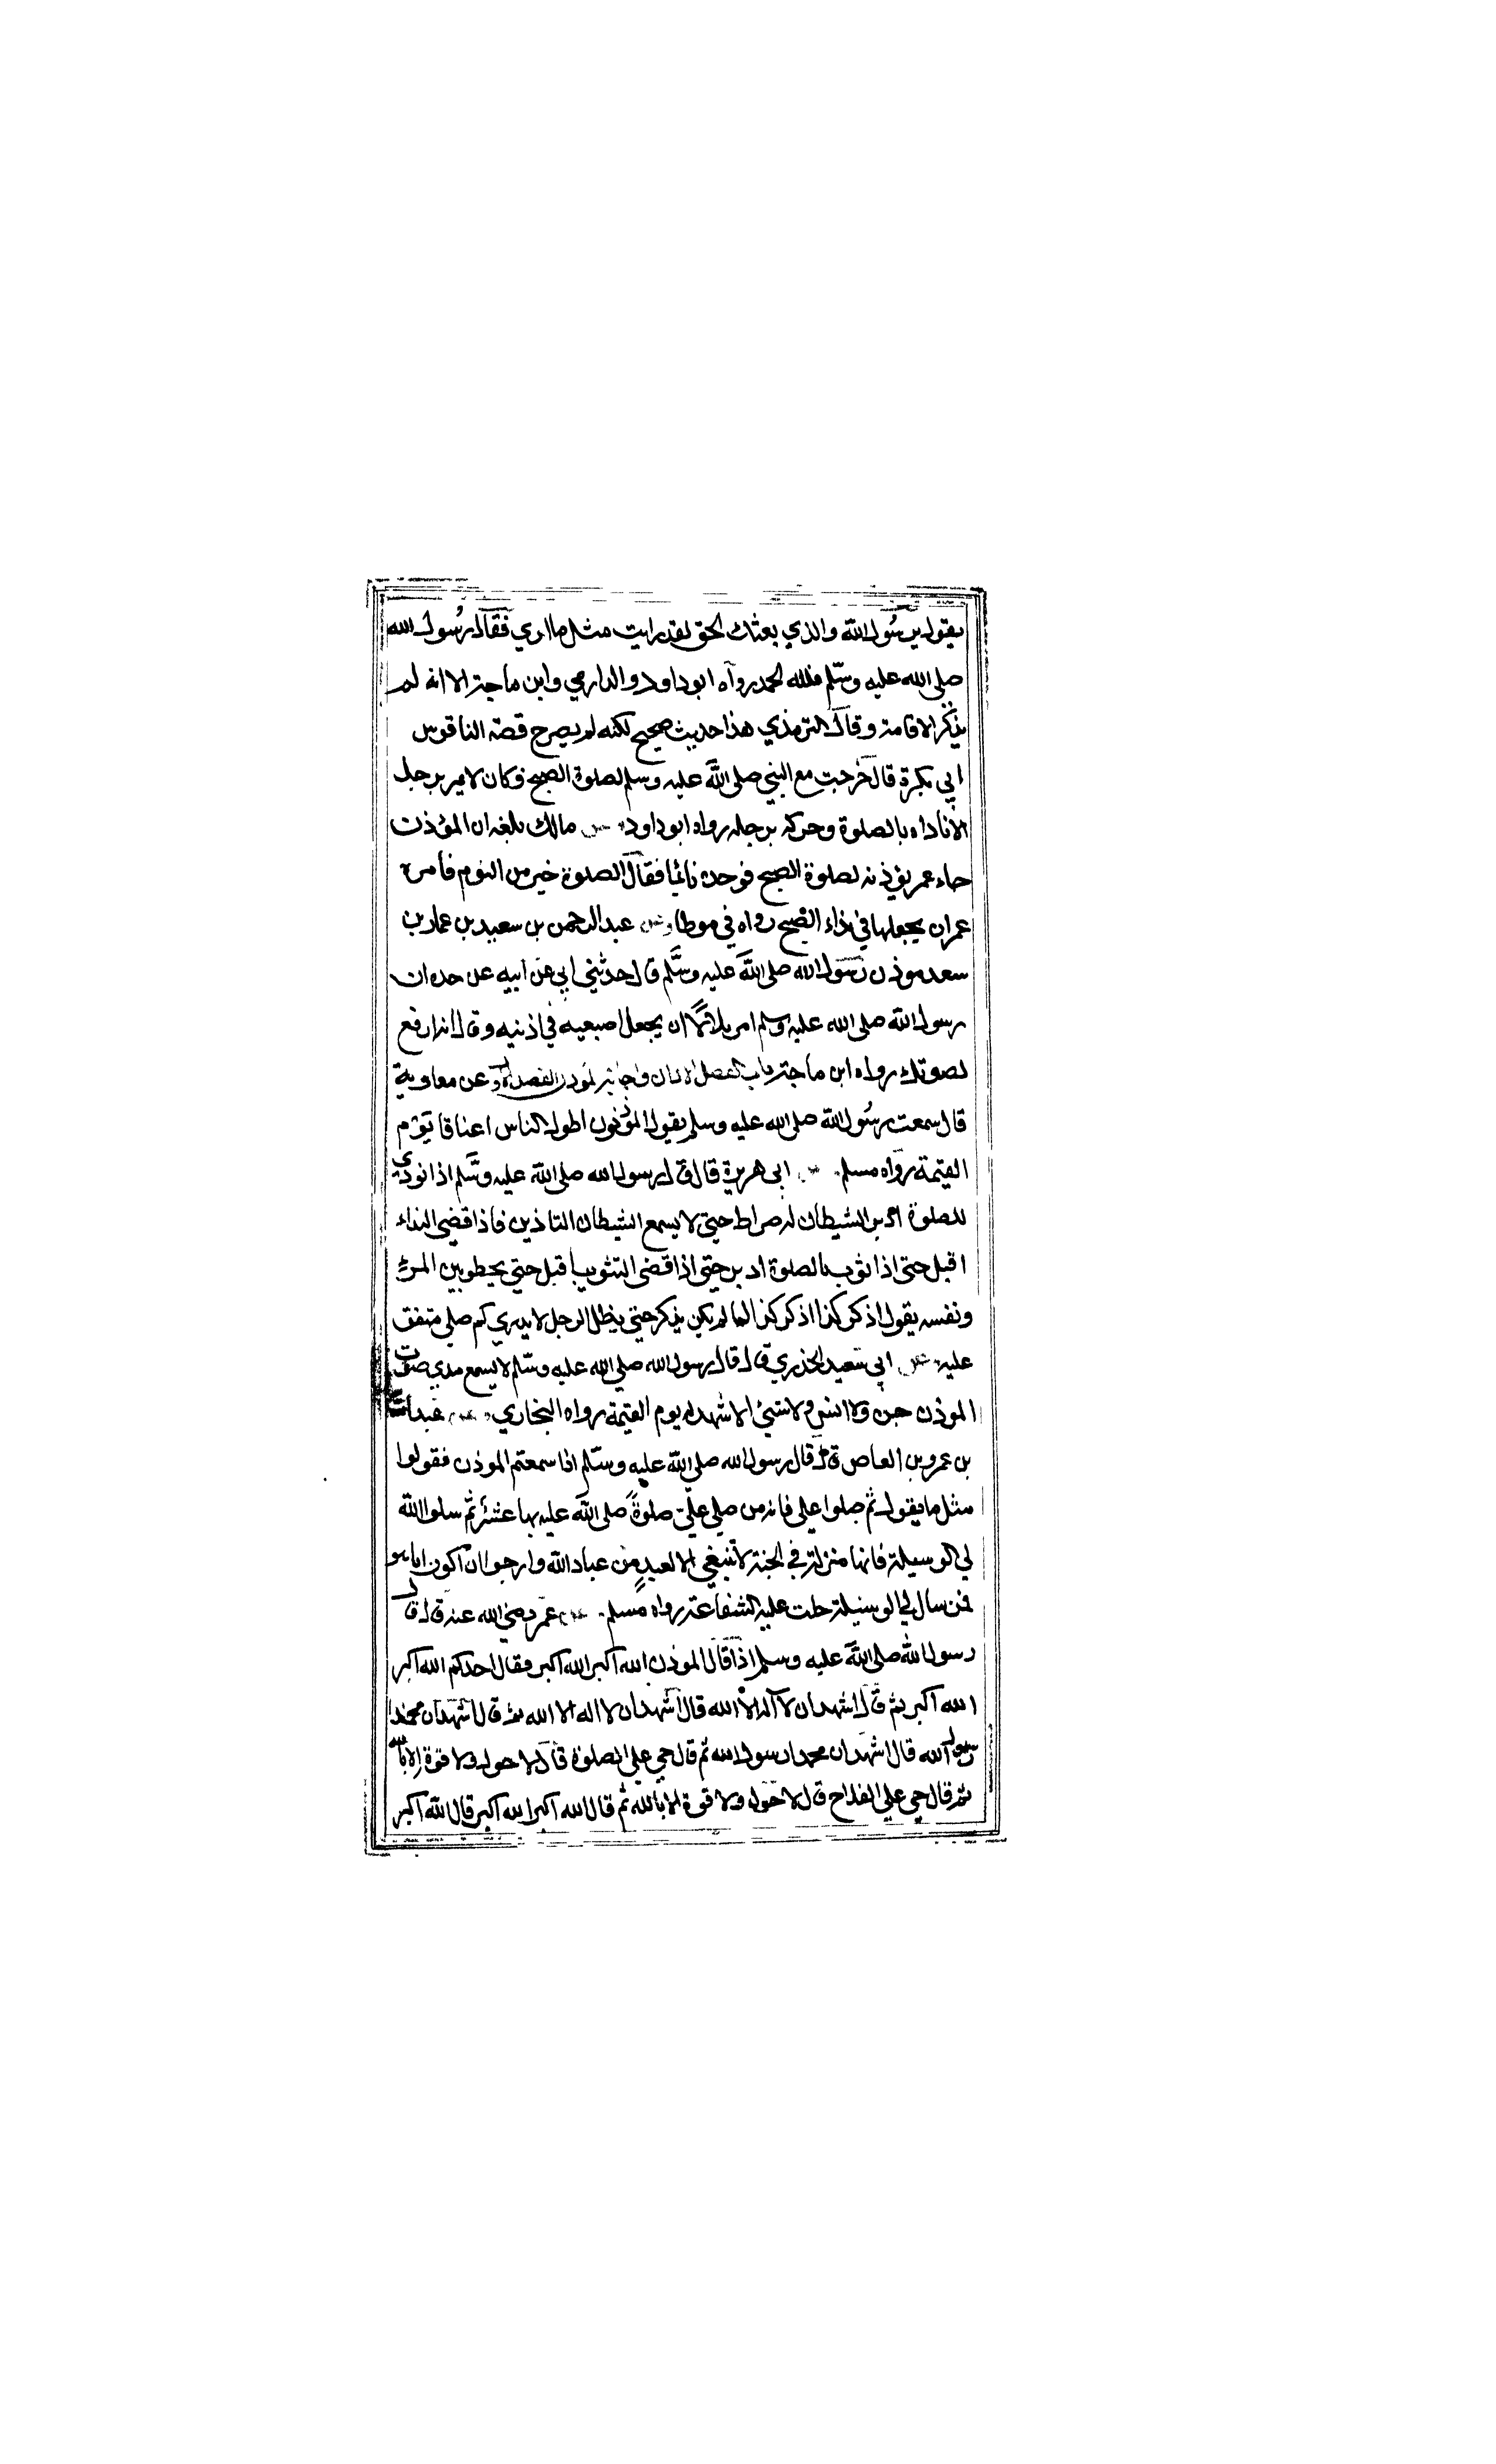 يقول يرسول الله والذي بعثك بالحق لقد رايت مثل ما اري فقال رسول الله
صلى الله عليه وسلم فلله الحمد رواه ابو داود والدارمي وابن ماجة الا انه لم
يذكر الاقامة وقال الترمذي هذا حديث صحيح لكنه لم يصرح قصة الناقوس
ابي بكرة قال خرجت مع النبي صلى الله عليه وسلم لصلوة الصبح فكان لا يمر برجل
الا ناداه بالصلوة وحركه برجله رواه ابو داود عن مالك بلغه ان المؤذن
جاء عمر يؤذنه لصلوة الصبح فوجده نائما فقال الصلوة خير من النوم فامره
عمر ان يجعلها في نداء الصبح رواه في موطا وعن عبد الرحمن بن سعيد بن عمار بن
سعد موذن رسول الله صلى الله عليه وسلم قال حدثني ابي عن ابيه عن جده ان
رسول الله صلى الله عليه وسلم امر بلالا ان يجعل اصبعيه في اذنيه وقال انه ارفع
لصوتك رواه ابن ماجة باب الفصل الاذان واجابة المؤذن الفصل الاول عن معاوية
قال سمعت رسول الله صلى الله عليه وسلم يقول المؤذنون اطول الناس اعناقا يوم
القيمة رواه مسلم عن ابي هريرة قال قال رسول الله صلى الله عليه وسلم اذا نودي
للصلوة ادبر الشيطان له ضراط حتي لا يسمع الشيطان التاذين فاذا قضي النداء
اقبل حتي اذا ثوب بالصلوة ادبر حتي اذا قضي التثويب اقبل حتي يخطر بين المرء
ونفسه يقول اذكر كذا اذكر كذا لما لم يكن يذكر حتي يظل الرجل لا يدري كم صلي متفق
عليه عن ابي سعيد الخذري قال قال رسول الله صلى الله عليه وسلم لا يسمع مدي صوت
الموذن جن ولا انس ولا شيئ الا شهد له يوم القيمة رواه البخاري وعن عبد الله
بن عمرو بن العاص قال قال رسول الله صلى الله عليه وسلم اذا سمعتم الموذن فقولوا
مثل ما يقول ثم صلوا علي فانه من صلي علي صلوة صلى الله عليه بها عشرا ثم سلوا الله
لي الوسيلة فانها منزلة في الجنة لا تنبغي الا لعبد من عباد الله وارجوا ان اكون انا هو
فمن سال لي الوسيلة حلت عليه الشفاعة رواه مسلم عن عمر رضي الله عنه قال قال
رسول الله صلى الله عليه وسلم اذا قال الموذن الله اكبر الله اكبر فقال احدكم الله اكبر
الله اكبر ثم قال اشهد ان لا اله الا الله قال اشهد ان لا اله الا الله ثم قال اشهد ان محمدا
رسول الله قال اشهد ان محمدا رسول الله ثم قال حي علي الصلوة قال لا حول ولا قوة الا بالله
ثم قال حي علي الفلاح قال لا حول ولا قوة الا بالله ثم قال الله اكبر الله اكبر قال الله اكبر